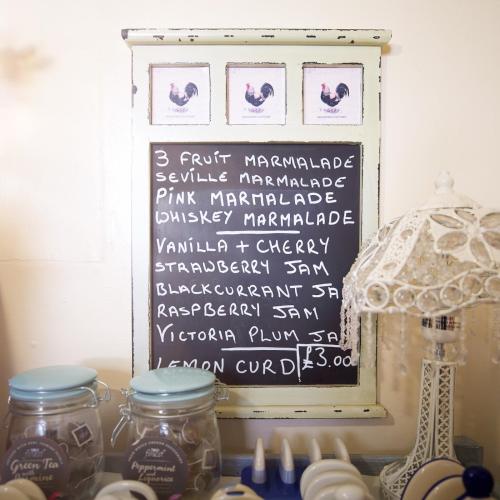 3 FRUIT MARMALADE
SEVILLE MARMALADE
PINK MARMALADE
WHISKEY MARMALADE
VANILLA + CHERRY
STRAWBERRY JAM
BLACKCURRANT JA
RASPBERRY JAM
VICTORIA PLUM JA
LEMON CURD £3.00
Green Tea
Peppermint
Liquorice